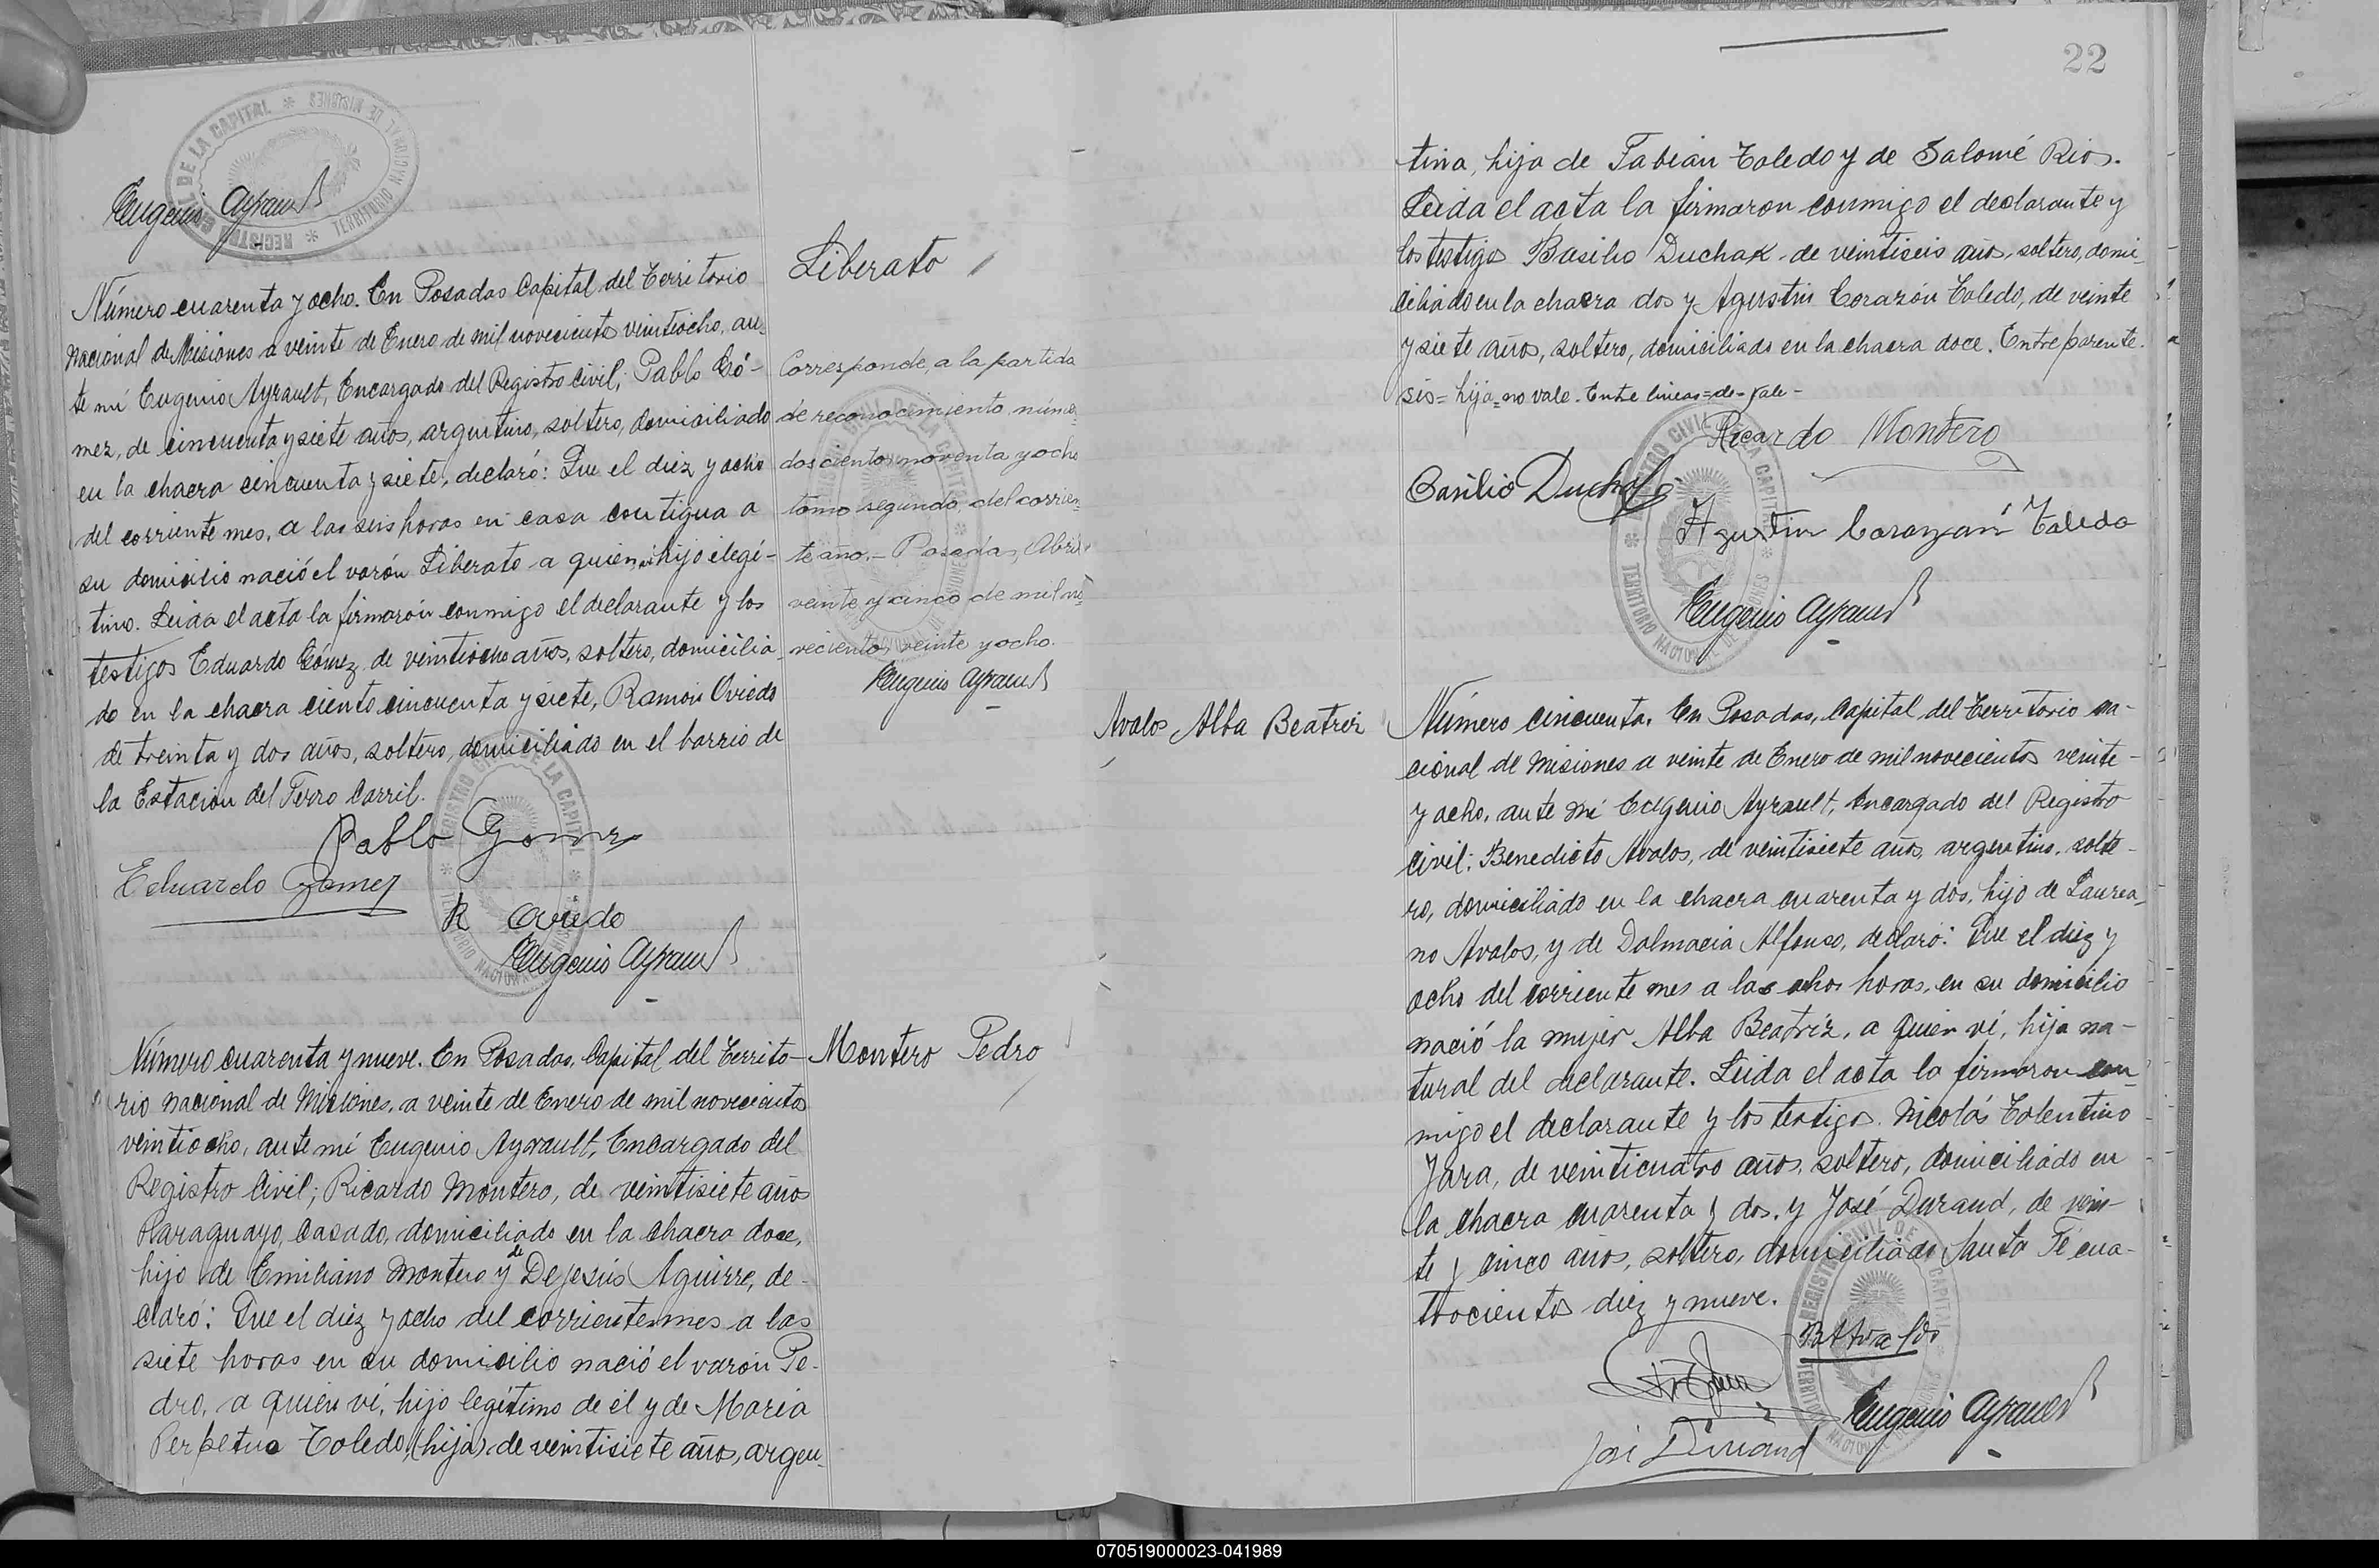 REGISTRO CIVIL DE LA CAPITAL * TERRITORIO NACIONAL DE MISIONES *
Eugenio Ayrault
Número cuarenta y ocho. En Posadas Capital del Territorio
Nacional de Misiones a veinte de Enero de mil novecientos veintiocho, an-
te mí Eugenio Ayrault, Encargado del Registro Civil; Pablo Gó-
mez, de cincuenta y siete años, argentino, soltero, domiciliado
en la chacra cincuenta y siete, declaró: Que el diez y ocho
del corriente mes, a las seis horas en casa contigua a
su domicilio nació el varón Liberato a quien ví hijo ilegí-
timo. Leida el acta la firmarón conmigo el declarante y los
testigos Eduardo Gómez, de veintiocho años, soltero, domicilia-
do en la chacra ciento cincuenta y siete, Ramón Oviedo
de treinta y dos años, soltero, domiciliado en el barrio de
la Estación del Ferro Carril.
Pablo Gomez
Eduardo Gomez
R Oviedo
Eugenio Ayrault
Liberato
Corresponde, a la partida
de reconocimiento núme-
doscientos noventa y ocho
tomo segundo, del corrien-
te año.- Posadas, Abril
veinte y cinco de mil no-
vecientos veinte y ocho.
Eugenio Ayrault
Número cuarenta y nueve. En Posadas, Capital del Territo-
rio Nacional de Misiones, a veinte de Enero de mil novecientos
veintiocho, ante mí Eugenio Ayrault, Encargado del
Registro Civil; Ricardo Montero, de veintisiete años
Paraguayo, casado, domiciliado en la chacra doce,
hijo de Emiliano Montero y de Dejesús Aguirre, de-
claró: Que el diez y ocho del corriente mes a las
siete horas en su domicilio nació el varón Pe-
dro, a quien ví, hijo legítimo de él y de María
Perpetua Toledo, (hija) de veintisiete años, argen-
Montero Pedro
22
tina, hija de Fabián Toledo y de Salomé Rios.
Leida el acta la firmaron conmigo el declarante y
los testigos Basilio Duchak de veintiseis años, soltero, domi-
ciliado en la chacra dos y Agustín Corazón Toledo, de veinte
y siete años, soltero, domiciliado en la chacra doce. Entre parente-
sis=hija=no vale. Entre lineas=de=vale-
Ricardo Montero
Basilio Duchak
Agustin Corazón Toledo
Eugenio Ayrault
Avalos Alba Beatriz
Número cincuenta. En Posadas, Capital del Territorio na-
cional de Misiones a veinte de Enero de mil novecientos veinte
y ocho, ante mí Eugenio Ayrault, Encargado del Registro
Civil; Benedicto Avalos, de veintisiete años, argentino, solte-
ro, domiciliado en la chacra cuarenta y dos, hijo de Laurea-
no Avalos, y de Dalmacia Alfonso, declaró: Que el diez y
ocho del corriente mes a las ocho horas, en su domicilio
nació la mujer Alba Beatríz, a quien ví, hija na-
tural del declarante. Leida el acta la firmaron con-
migo el declarante y los testigos. Nicolás Tolentino
Jara, de veinticuatro años, soltero, domiciliado en
la chacra cuarenta y dos, y José Durand, de vein-
te y cinco años, soltero, domiciliado Santa Fé cua-
trocientos diez y nueve.
Eugenio Ayrault
José Durand
070519000023-041989